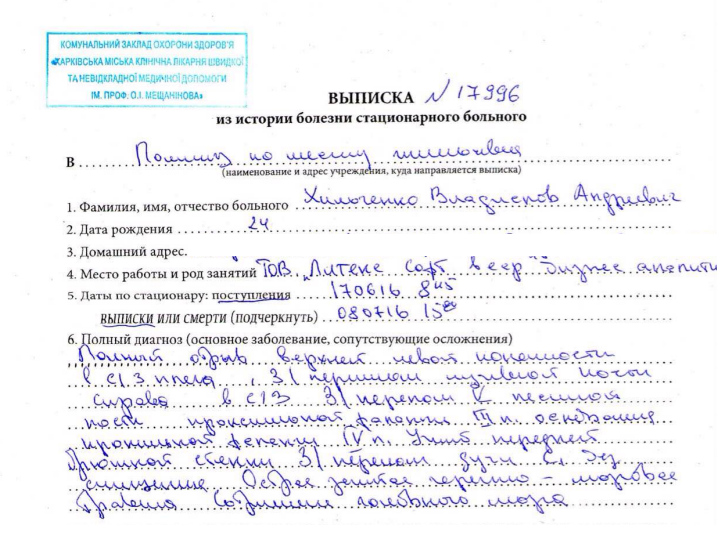 КОМУНАЛЬНИЙ ЗАКЛАД ОХОРОНИ ЗДОРОВ'Я
«ХАРКІВСЬКА МІСЬКА КЛІНІЧНА ЛІКАРНЯ ШВИДКОЇ
ТА НЕВІДКЛАДНОЇ МЕДИЧНОЇ ДОПОМОГИ
ІМ. ПРОФ. О.І. МЕЩАНІНОВА»
ВЫПИСКА N 17996
из истории болезни стационарного больного
В по месту
(наименование и адрес учреждения, куда направляется выписка)
1. Фамилия, имя, отчество больного Владислав Андреевич
2. Дата рождения 24
3. Домашний адрес.
4. Место работы и род занятий ТОВ "Бизнес аналитик
5. Даты по стационару: поступления 170616 8 45
выписки или смерти (подчеркнуть) 080716
6. Полный диагноз (основное заболевание, сопутствующие осложнения)
Полный отрыв верхней левой конечности
в с/3 плеча, 3/ перелом
справа в с/3 3/ перелом V
кости III п. основания
IV п. Ушиб передней
брюшной стенки 3/ перелом дуги без
смещения Острая закрытая черепно - мозговая
травма Сотрясение головного мозга